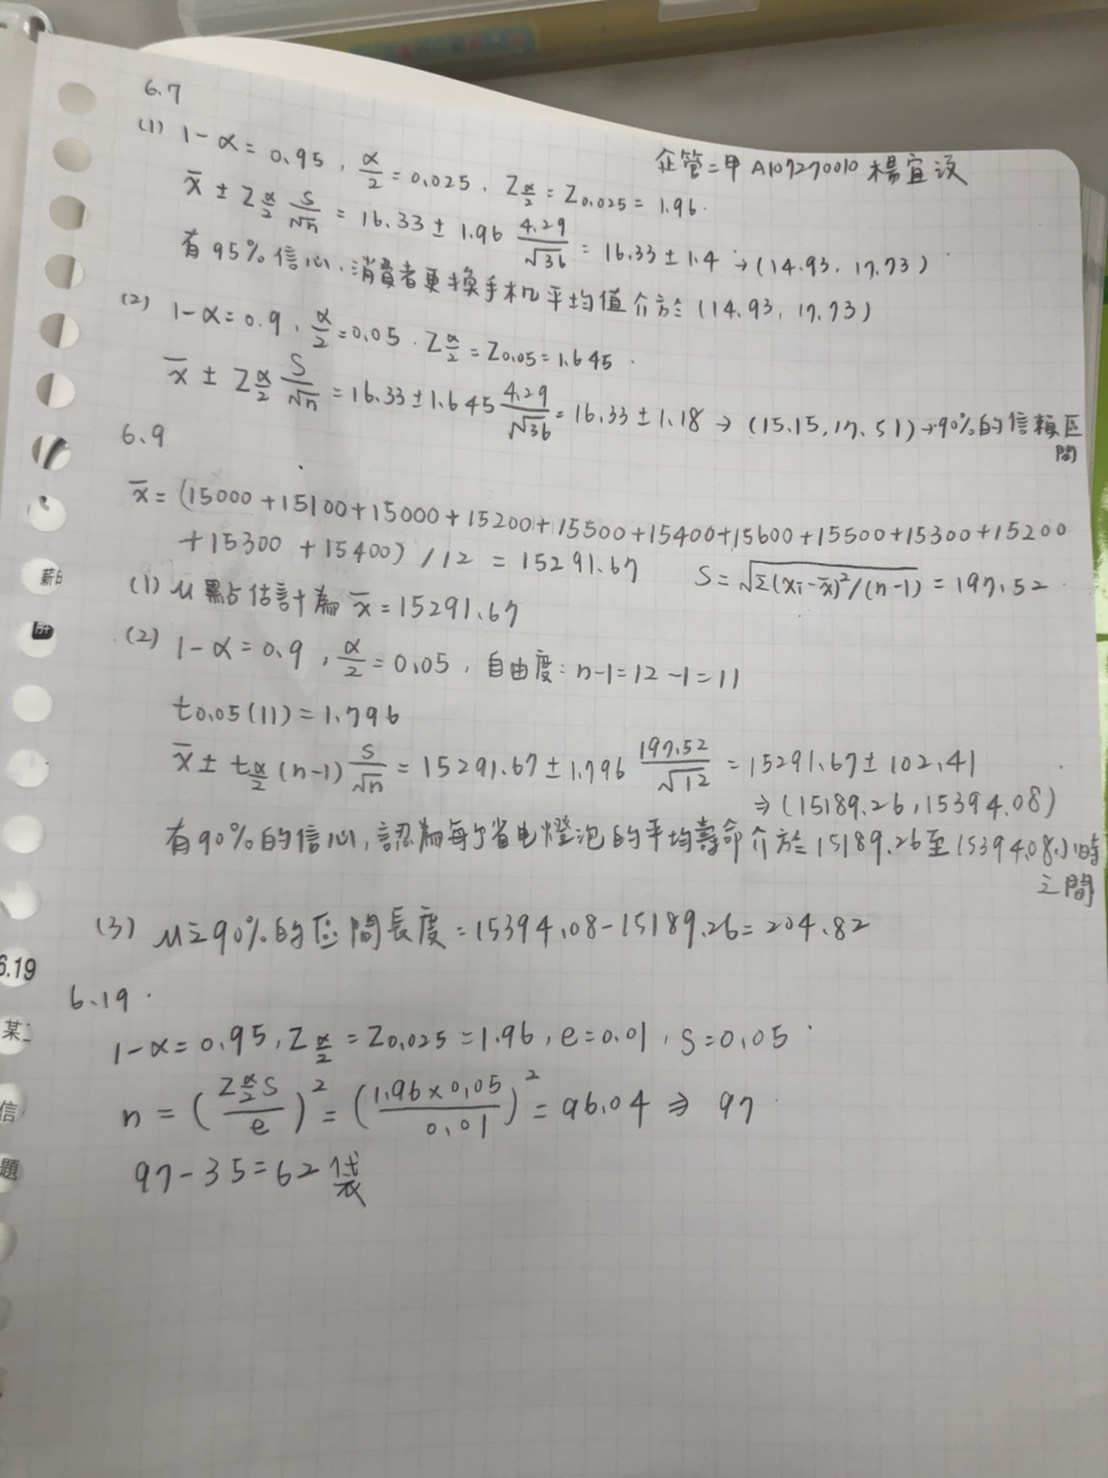 6.7
企管二甲 A107270010 楊宜
(1) 1-α = 0.95, α/2 = 0.025, Zα/2 = Z0.025 = 1.96.
x̄ ± Zα/2 S/√n = 16.33 ± 1.96 4.29/√36 = 16.33 ± 1.4 → (14.93, 17.73)
有95%信心,消費者更換手机平均值介於 (14.93, 17.73)
(2) 1-α = 0.9, α/2 = 0.05, Zα/2 = Z0.05 = 1.645
x̄ ± Zα/2 S/√n = 16.33 ± 1.645 4.29/√36 = 16.33 ± 1.18 → (15.15, 17.51) → 90%的信賴區
間
6.9
x̄ = (15000+15100+15000+15200+15500+15400+15600+15500+15300+15200
+15300 +15400) / 12 = 15291.67 S = √Σ(xi-x̄)²/(n-1) = 197.52
(1) μ點估計為 x̄ = 15291.67
(2) 1-α = 0.9, α/2 = 0.05, 自由度: n-1 = 12-1 = 11
t0.05(11) = 1.796
x̄ ± tα/2 (n-1) S/√n = 15291.67 ± 1.796 197.52/√12 = 15291.67 ± 102.41
⇒ (15189.26, 15394.08)
有90%的信心,認為每个省电燈泡的平均壽命介於15189.26至15394.08小時
之間
(3) μ之90%的区間長度 = 15394.08-15189.26 = 204.82
6.19
1-α = 0.95, Zα/2 = Z0.025 = 1.96, e = 0.01, S = 0.05
n = (Zα/2 S/e)² = (1.96×0.05/0.01)² = 96.04 ⇒ 97
97-35 = 62袋
薪
6.19
某
信
題